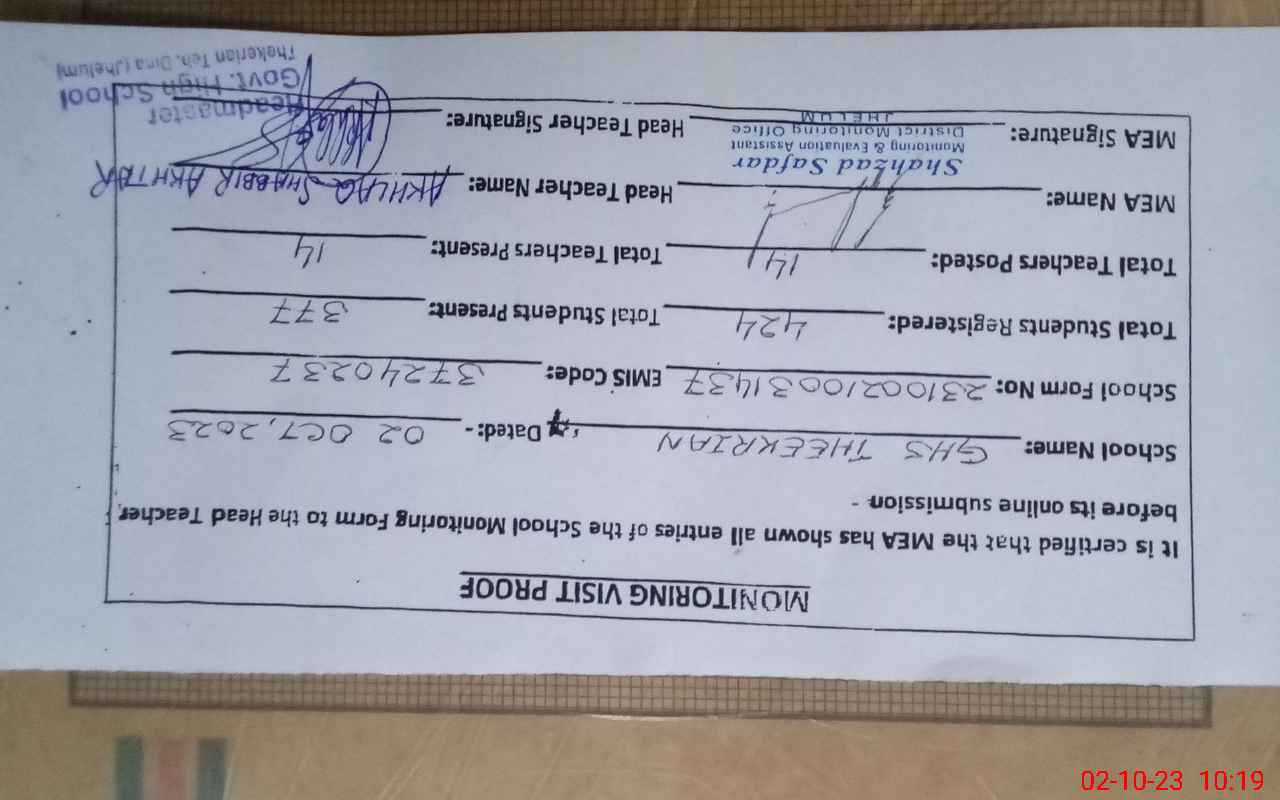 MONITORING VISIT PROOF
It is certified that the MEA has shown all entries of the School Monitoring Form to the Head Teacher,
before its online submission -
School Name: GHS THEEKRIAN Dated: - 02 OCT, 2023
School Form No: 2310021003 1437 EMIS Code: 37240237
Total Students Registered: 424 Total Students Present: 377
Total Teachers Posted: 14 Total Teachers Present: 14
MEA Name: Head Teacher Name: AKHLAQ SHABBIR AKHTAR
Shahzad Safdar
Monitoring & Evaluation Assistant
District Monitoring Office
JHELUM
MEA Signature: Head Teacher Signature:
Headmaster
Govt. High School
Thekerian Teh. Dina (Jhelum)
02-10-23 10:19